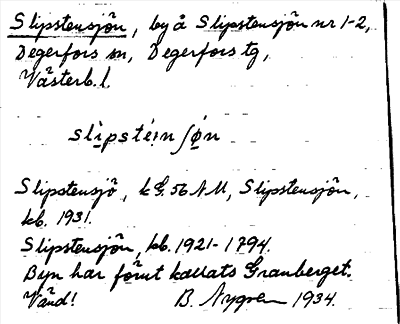 Slipstensjön, by å Slipstensjön nr 1-2,
Degerfors sn, Degerfors tg,
Västerb. l.
slìpsté̩i̩n ʃø̀n
Slipstensjö, kG. 56 NM, Slipstensjön,
kb. 1931.
Slipstensjön, kb. 1921-1794.
Byn har förut kallats Granberget.
Vänd! B. Nygren 1934.